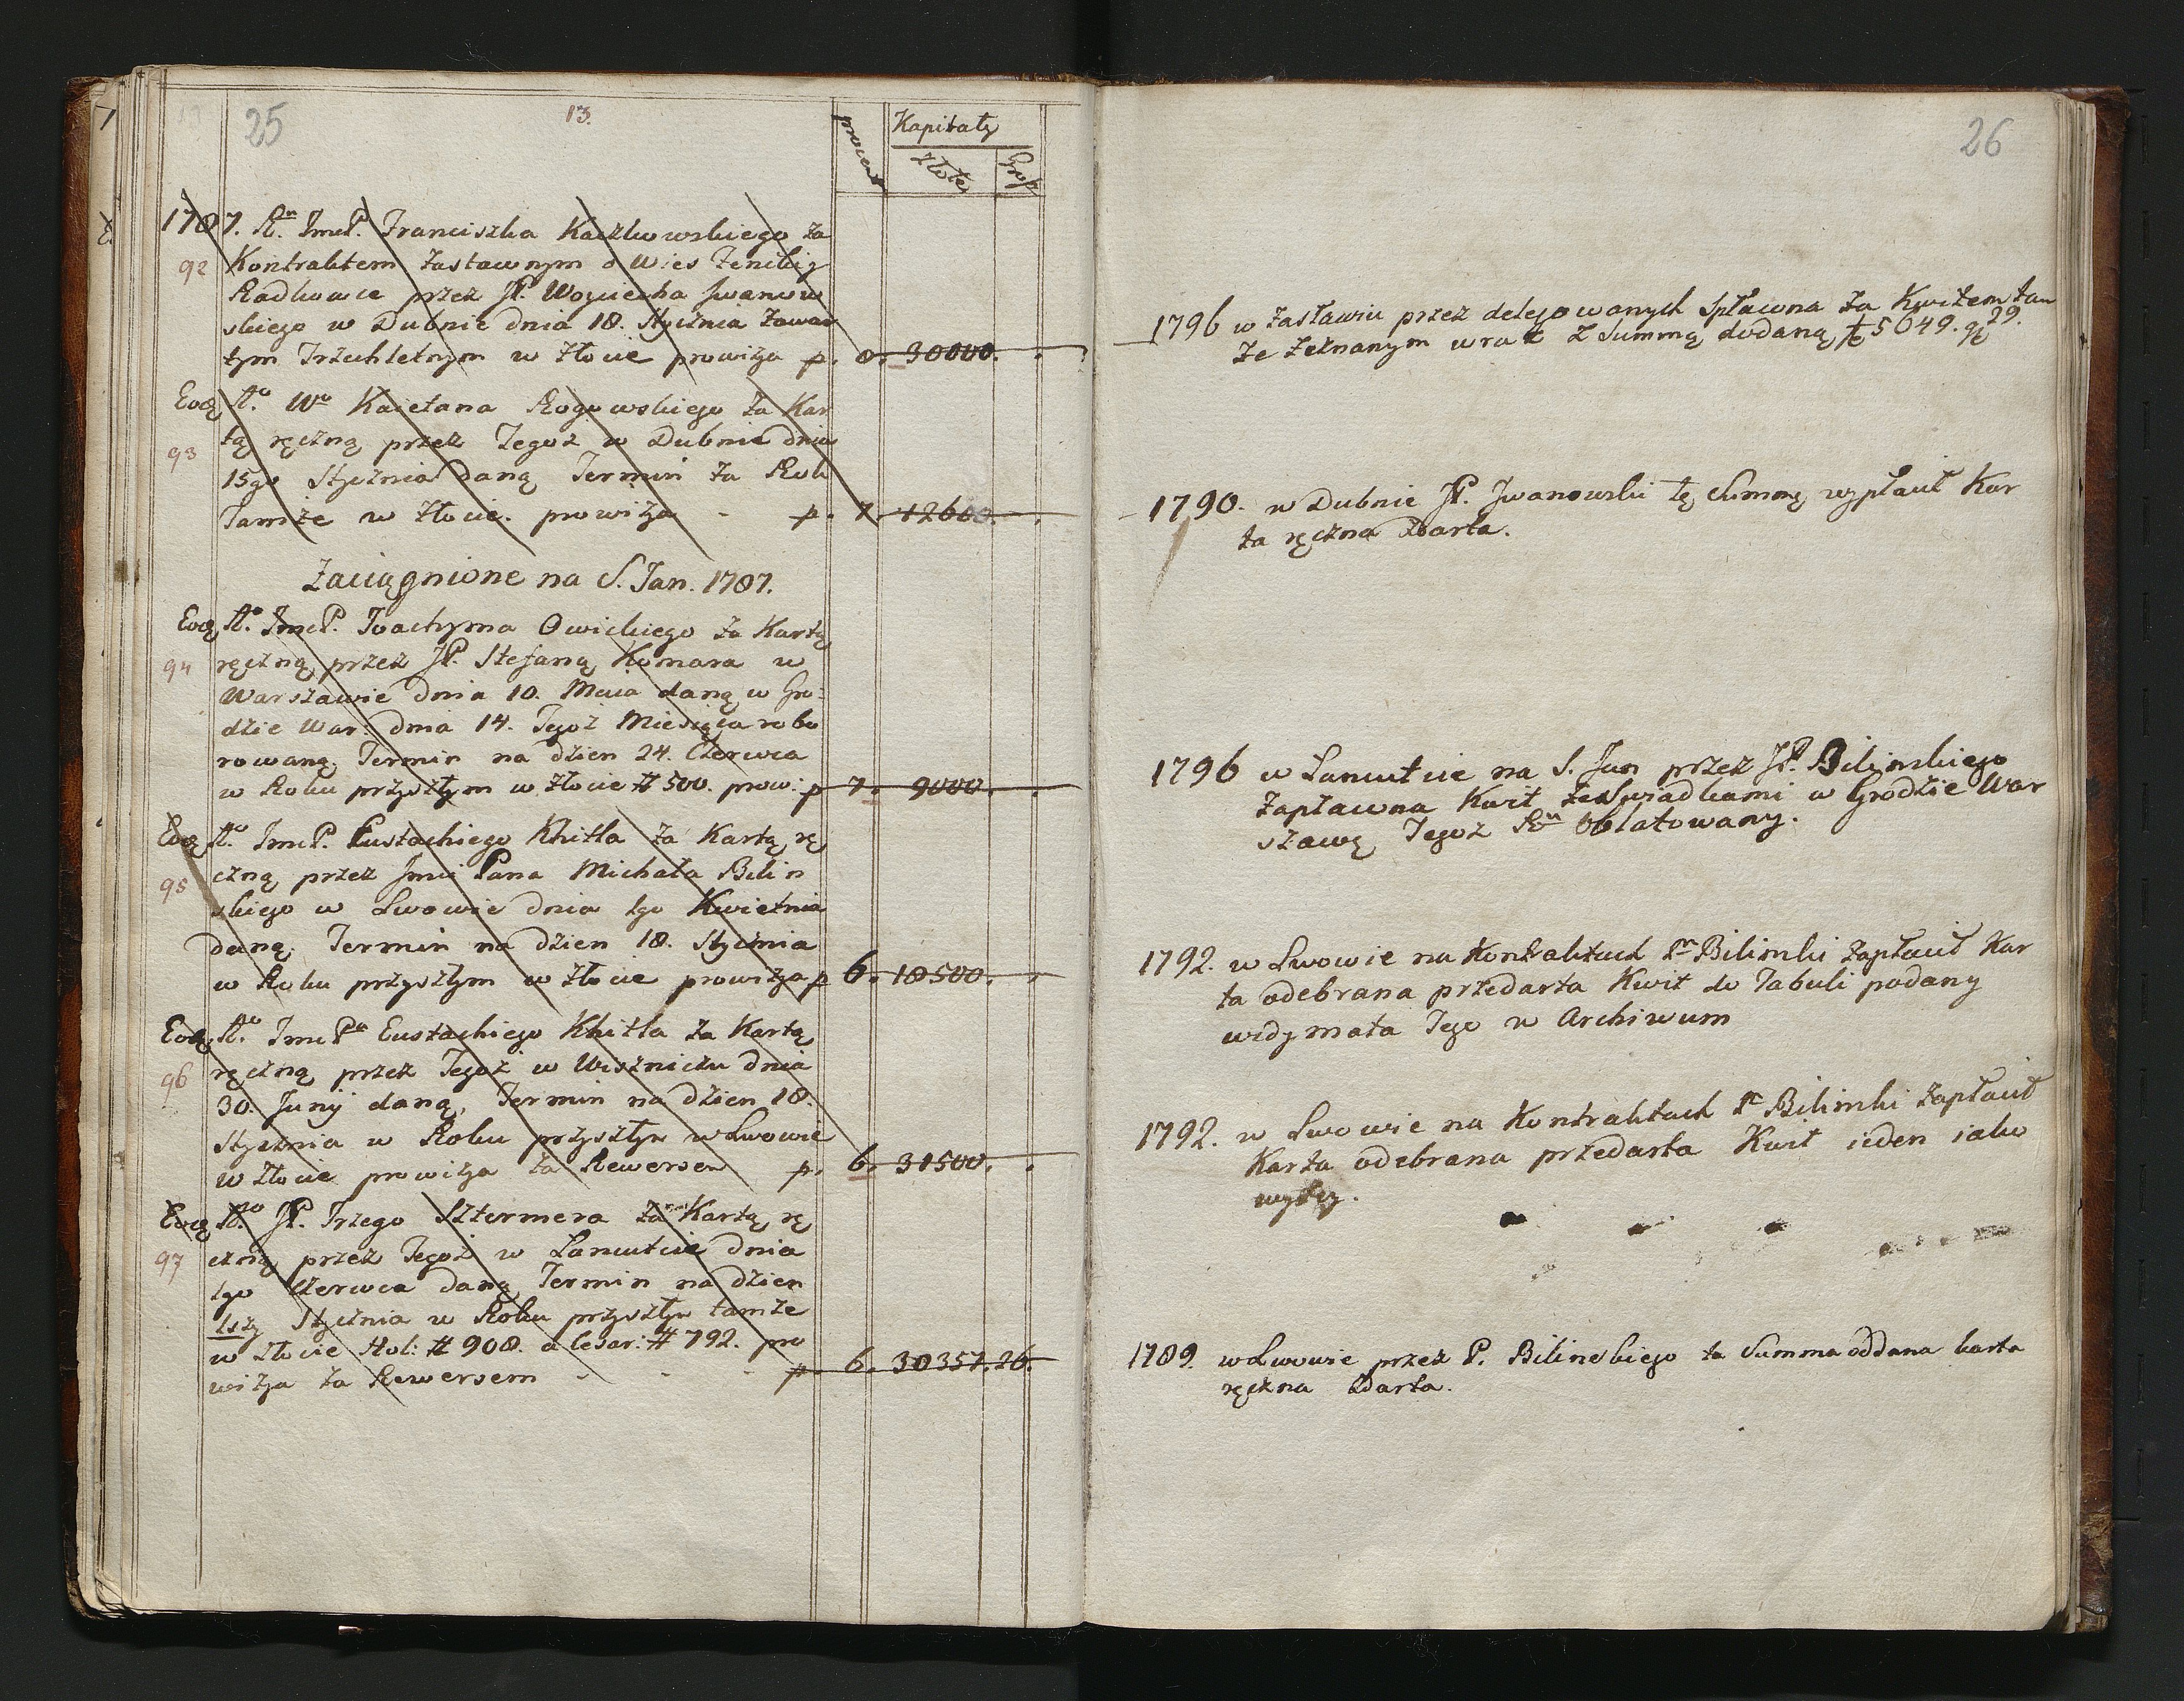 25
13.
procent
Kapitały
złote
Grosz
1787. Rn. ImcP. Franciszka Kaczkowskiego za
92 Kontraktem zastawnym o Wieś
Radkowce przez JP. Woyciecha Jwanow
skiego w Dubnie dnia 18. Stycznia zawar
tym Trzechletnym w złocie prowizya p. 8. 30000.
Eodę Ro. Wo Kaietana Rogowskiego za Kar
93 tą ręczną przez Tegoż w Dubnie dnia
15go Stycznia daną Termin za Rok
Tamże w złocie. prowizya - p. 7. 12600.
Zaciągnione na S. Jan. 1787.
Eodę Ro. ImcP. Joachyma Owickiego za Kartą
94 ręczną przez JP. Stefaną Komara w
Warszawie dnia 10. Maia daną w Gro:
dzie War: dnia 14. Tegoż Miesiąca robo
rowaną. Termin na dzien 24. Czerwca
w Roku przyszłym w złocie # 500. prow: p 7. 9000.
Eodę Ro. ImcP. Eustachiego Khitla za Kartą rę
95 czną przez Jmci Pana Michała Bilin
skiego w Lwowie dnia 1go Kwietnia
daną. Termin na dzien 18. Stycznia
w Roku przyszłym w złocie prowizya p 6. 18500.
Eodę Ro. ImcPa Eustachiego Khitla za Kartą
96 ręczną przez Tegoż w Wiszniczu dnia
30. Junij daną, Termin na dzien 18.
Stycznia w Roku przyszłym w Lwowie
w złocie prowizya za Rewersem p. 6. 31500.
Eodę Ro. JP. Jrzego Sztermera za Kartą rę
97 czną przez Tegoż w Lancutcie dnia
1go Czerwca daną Termin na dzien
1szy Stycznia w Roku przyszłym tamże
w złocie Hol: # 908. a Cesar: # 792. pro
wizya za Rewersem - - - p. 6. 30357.26.
26
1796 w zasławiu przez delegowanych Spłacona za Kwitem tam
że zeznanym wraz z Summą dodaną 5649. gr 29.
1790. w Dubnie JP. Jwanowski tę Summę wypłacił Kar
ta ręczna zdarta.
1796 w Lancutcie na S. Jan przez JP. Bilinskiego
zapłacona Kwit ze Swiadkami w Grodzie War
szawę Tegoż Ru Oblatowany.
1792. w Lwowie na Kontraktach Pn Bilinski zapłacił Kar
ta odebrana przedarta Kwit do Tabuli podany
widymata Tego w Archiwum
1792. w Lwowie na Kontraktach Pn Bilinski zapłacił
Karta odebrana przedarta Kwit ieden iako
wyżey.
1789. w Lwowie przez P. Bilinskiego ta Summa oddana karta
ręczna zdarta.